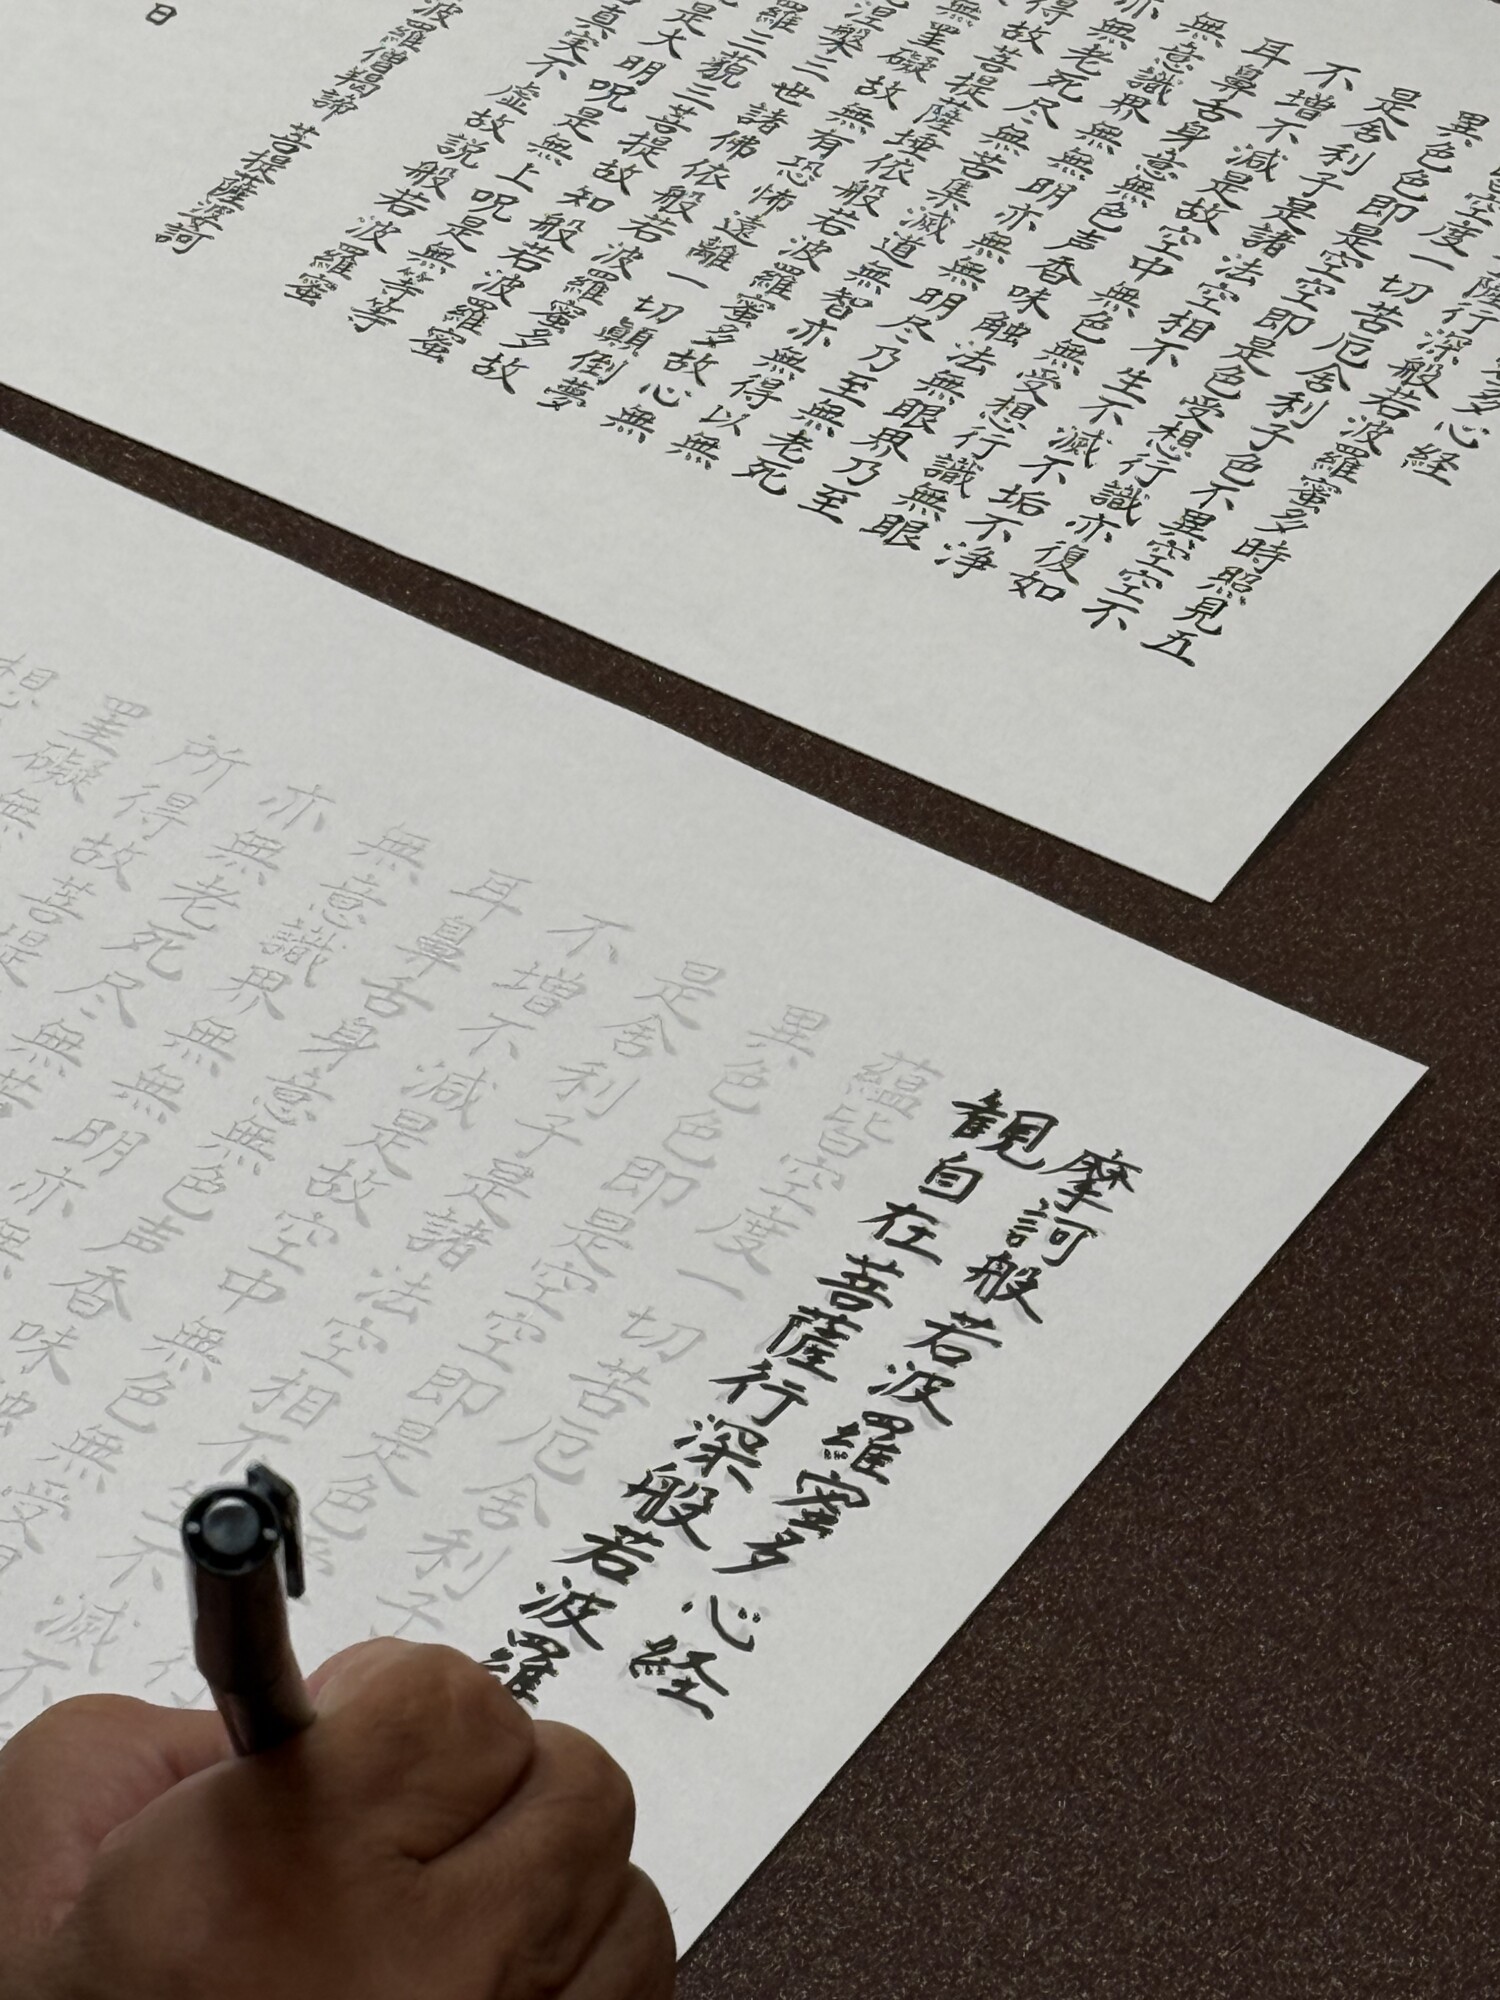 多心経
薩行深般若波羅蜜多時照見五
空度一切苦厄舎利子色不異空空不
異色色即是空空即是色受想行識亦復如
是舎利子是諸法空相不生不滅不垢不浄
不増不減是故空中無色無受想行識無眼
耳鼻舌身意無色声香味触法無眼界乃至
無意識界無無明亦無無明尽乃至無老死
亦無老死尽無苦集滅道無智亦無得以無
得故菩提薩埵依般若波羅蜜多故心無
無罣礙故無有恐怖遠離一切顛倒夢
涅槃三世諸佛依般若波羅蜜多故
羅三藐三菩提故知般若波羅蜜
是大明呪是無上呪是無等等
真実不虚故説般若波羅蜜
波羅僧羯諦 菩提薩婆訶
日
摩訶般若波羅蜜多心経
観自在菩薩行深般若波羅
蘊皆空度一切苦厄舎利子
異色色即是空空即是色
是舎利子是諸法空相不生不滅不
不増不減是故空中無色無受
耳鼻舌身意無色声香味
無意識界無無明亦無
亦無老死尽無苦
所得故菩提
罣礙無
想